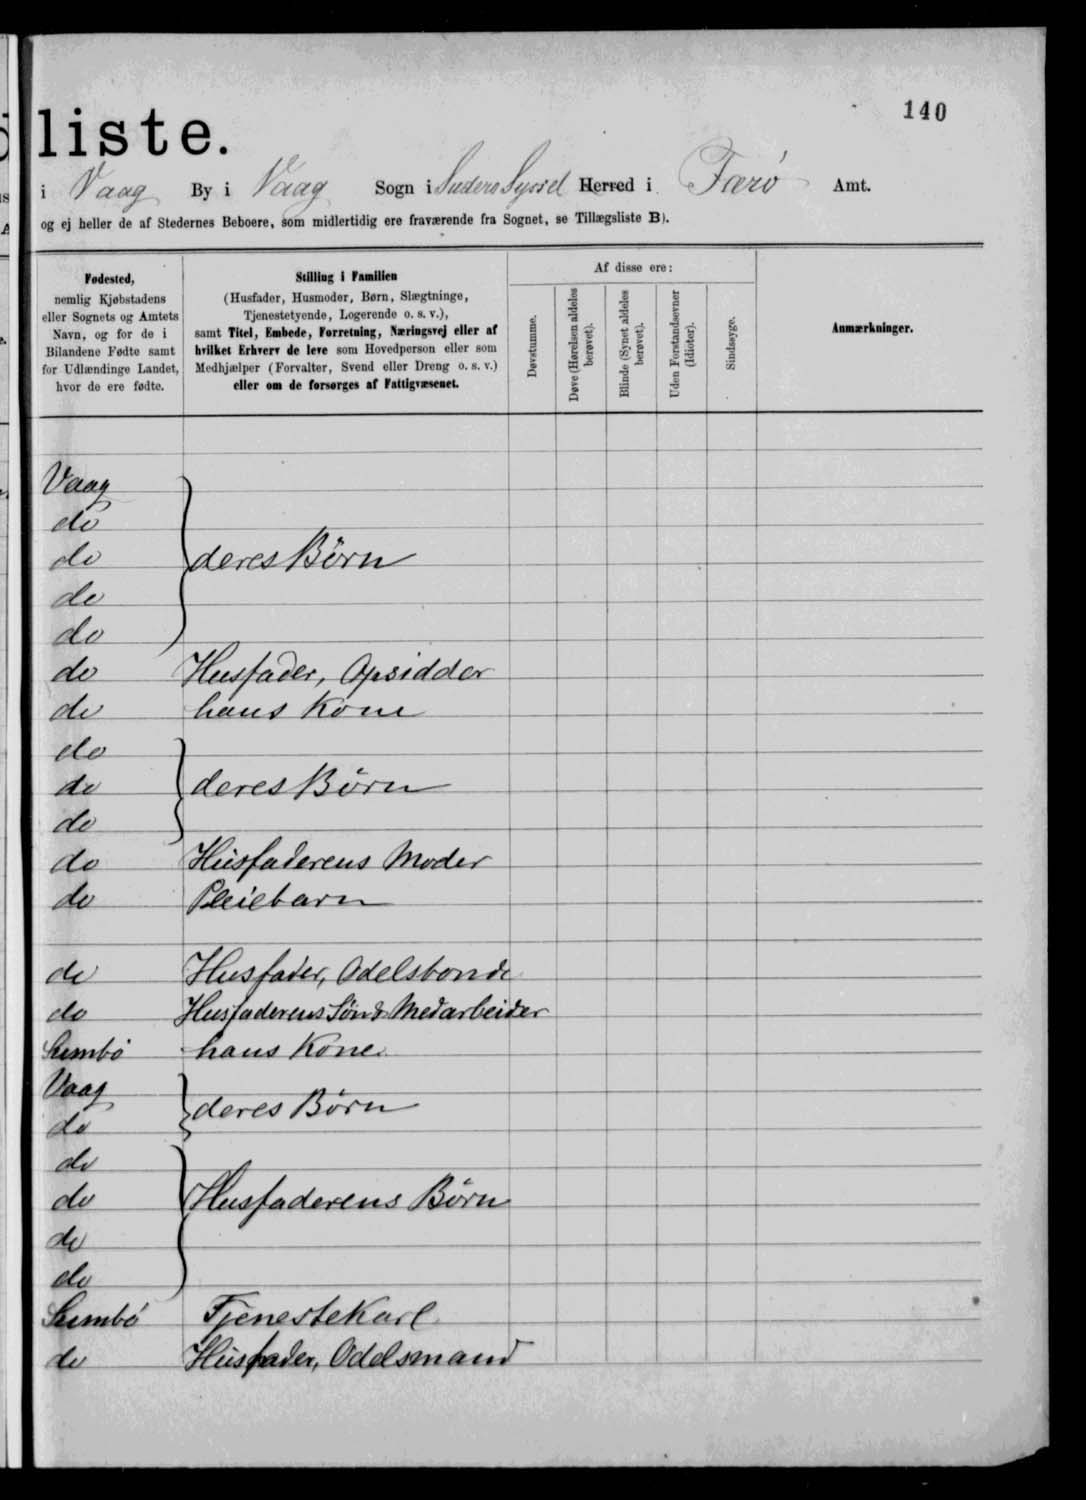 140
liste.
i Vaag By i Vaag Sogn i Suderø Syssel Herred i Færø Amt.
og ej heller de af Stedernes Beboere, som midlertidig ere fraværende fra Sognet, se Tillægsliste B).
Fødested,
nemlig Kjøbstadens
eller Sognets og Amtets
Navn, og for de i
Bilandene Fødte samt
for Udlændinge Landet,
hvor de ere fødte.
Stilling i Familien
(Husfader, Husmoder, Børn, Slægtninge,
Tjenestetyende, Logerende o. s. v.),
samt Titel, Embede, Forretning, Næringsvej eller af
hvilket Erhverv de leve som Hovedperson eller som
Medhjælper (Forvalter, Svend eller Dreng o. s. v.)
eller om de forsørges af Fattigvæsenet.
Af disse ere:
Døvstumme.
Døve (Hørelsen aldeles
berøvet).
Blinde (Synet aldeles
berøvet).
Uden Forstandsevner
(Idioter).
Sindssyge.
Anmærkninger.
Vaag
do
do deres Børn
do
do
do Husfader, Opsidder
do hans Kone
do
do deres Børn
do
do Husfaderens Moder
do Pleiebarn
do Husfader, Odelsbonde
do Husfaderens Søn & Medarbeider
Sumbø hans Kone
Vaag
do deres Børn
do
do Husfaderens Børn
do
do
Sumbø Tjenestekarl
do Husfader, Odelsmand